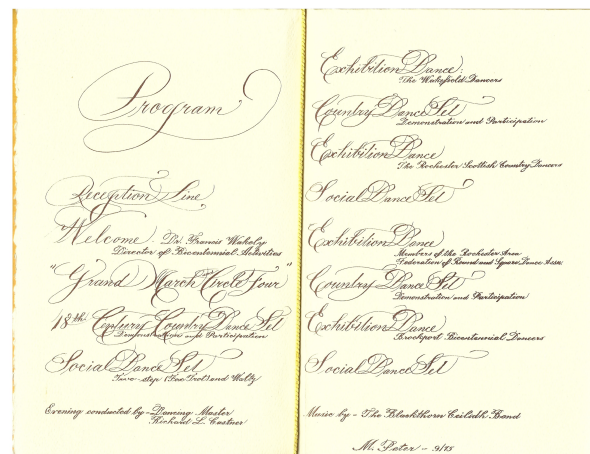 Program
Reception Line
Welcome Dr. Francis Wakely
Director of Bicentennial Activities
"Grand March Circle Four"
18th Century Country Dance Set
Demonstration and Participation
Social Dance Set
Two-step (Fox Trot) and Waltz
Evening conducted by - Dancing Master
Richard L. Castner
Exhibition Dance:
The Wakefield Dancers
Country Dance Set
Demonstration and Participation
Exhibition Dance
The Rochester Scottish Country Dancers
Social Dance Set
Exhibition Dance
Members of the Rochester Area
Federation of Round and Square Dance Assn.
Country Dance Set
Demonstration and Participation
Exhibition Dance
Brockport Bicentennial Dancers
Social Dance Set
Music by - The Blackthorn Ceilidh Band
M. Peter - 9/75